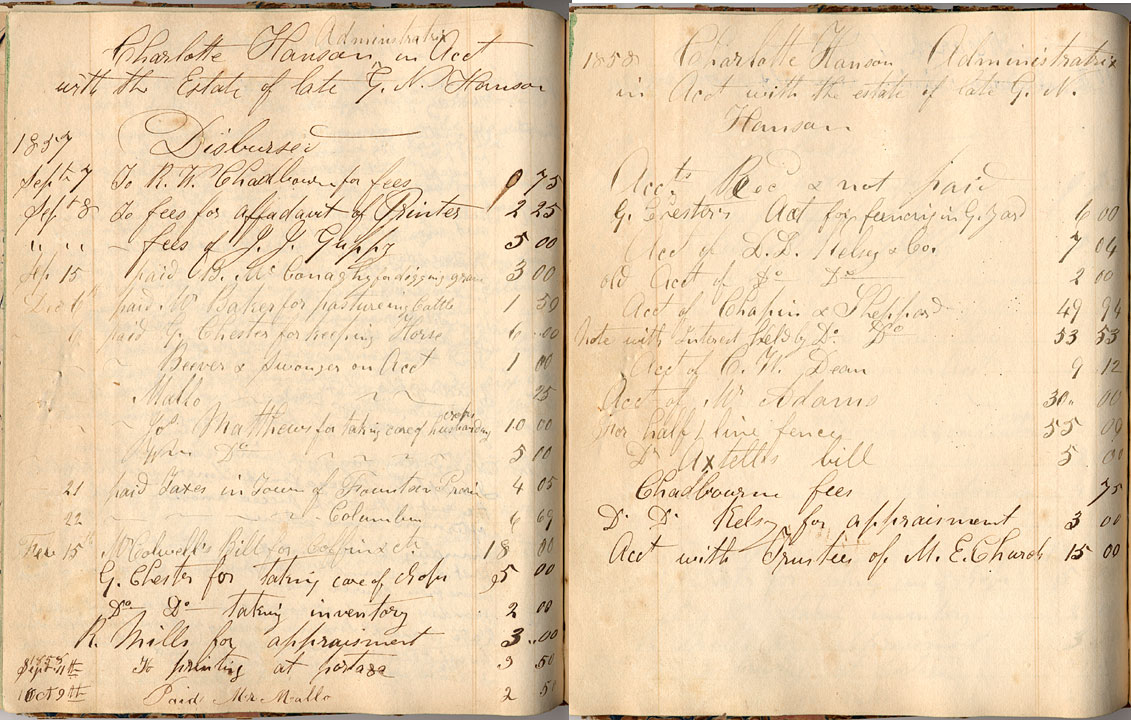 Administratrix
Charlotte Hanson, in Acct
with the Estate of late G. N. Hanson
1857 Disbursed
Sept 7 To R. W. Chadbourn for fees 0 75
Sept 8 To fees for affadavit of Printer 2 25
" " ~ fees of J. J. Guppy 5 00
Sep 15 paid B. McConaghy for digging grave 3 00
Dec 6 paid Mr Baker for pastureing Cattle 1 50
6 paid G. Chester for keeping Horse 6 00
~ Beever & Swonger on Acct 1 00
Mallo ~ ~ ~ 25
crops
~ Jos. Matthews for taking care of husbandry 10 00
Do 5 00
21 paid Taxes in Town of Fountain Prairie 4 05
22 ~ ~ ~ Columbus 6 69
15 McColwell's Bill for coffin & ct. 18 00
G. Chester for taking care of crops 95 00
Do Do taking inventory 2 00
R. Mills for appraisment 3 00
1858
Sept 4th To printing at portaga 3 50
Oct 9th Paid Mr Mallo 2 5
1858 Charlotte Hanson Administratrix
in Acct with the estate of late G. N.
Hanson
Accts Recd & not paid
G. Chester's Act for fencing in G. Yard 6 00
Act of D. D. Kelsey & Co. 7 04
old Acct of Do Do 2 00
Act of Chapin & Sheppard 49 94
Note with Interest held by Do Do 53 53
Acct of C. W. Dean 9 12
Acct of Mr Adams 30 00
for half line fence 55 00
Dr Axtell's bill 5 00
Chadbourne fees 75
D. D. Kelsy for appraisment 3 00
Acct with Trustees of M. E. Church 15 00